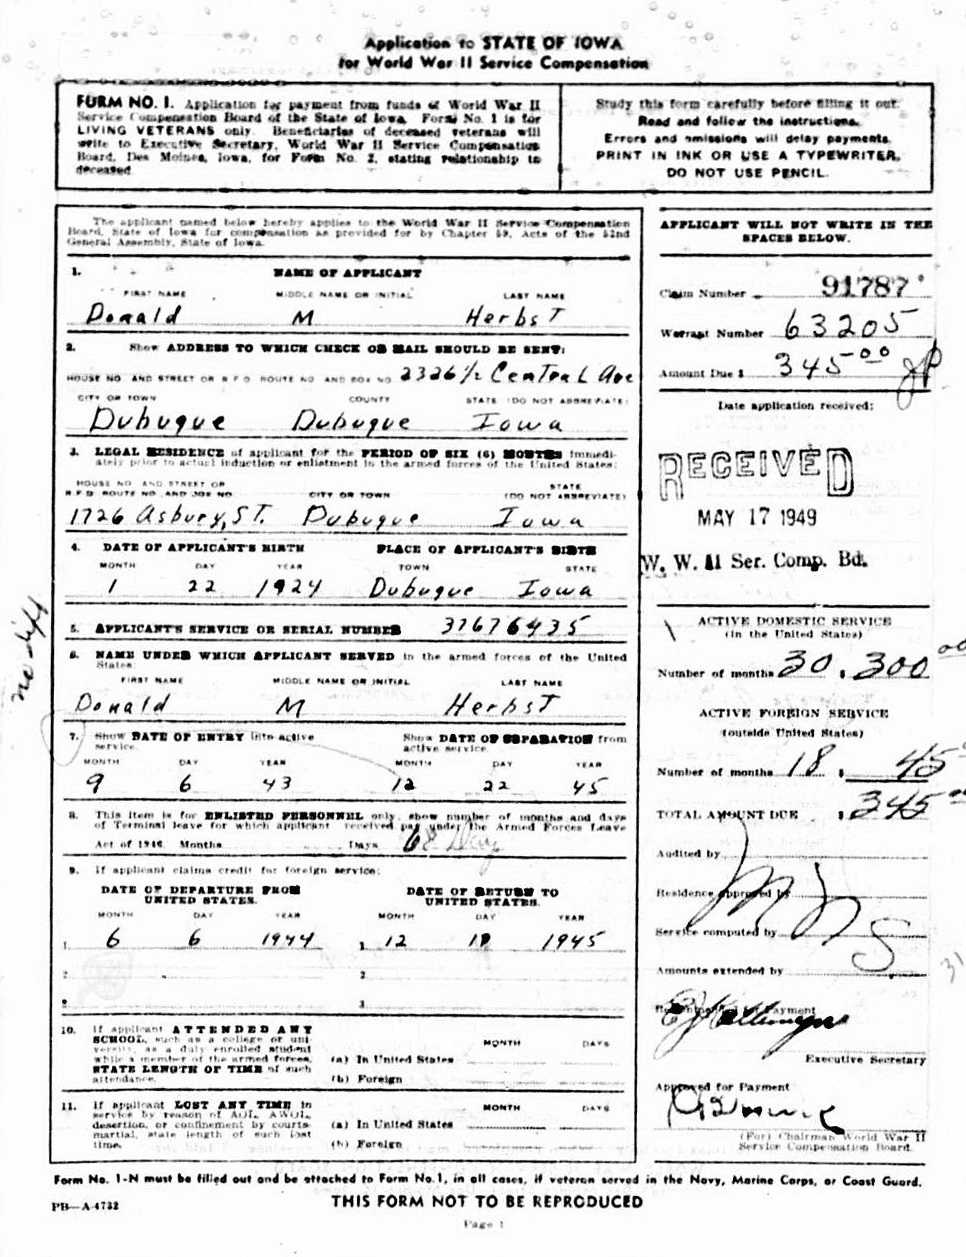 Application to STATE OF IOWA
for World War II Service Compensation
FORM NO. 1. Application for payment from funds of World War II
Service Compensation Board of the State of Iowa. Form No. 1 is for
LIVING VETERANS only. Beneficiaries of deceased veterans will
write to Executive Secretary, World War II Service Compensation
Board, Des Moines, Iowa, for Form No. 2, stating relationship to
deceased.
Study this form carefully before filling it out.
Read and follow the instructions.
Errors and omissions will delay payments.
PRINT IN INK OR USE A TYPEWRITER.
DO NOT USE PENCIL.
The applicant named below hereby applies to the World War II Service Compensation
Board, State of Iowa for compensation as provided for by Chapter 59, Acts of the 52nd
General Assembly, State of Iowa.
1. NAME OF APPLICANT
FIRST NAME MIDDLE NAME OR INITIAL LAST NAME
Donald M Herbst
2. Show ADDRESS TO WHICH CHECK OR MAIL SHOULD BE SENT:
HOUSE NO. AND STREET OR R.F.D. ROUTE NO. AND BOX NO. 2326 1/2 Central Ave
CITY OR TOWN COUNTY STATE (DO NOT ABBREVIATE)
Dubuque Dubuque Iowa
3. LEGAL RESIDENCE of applicant for the PERIOD OF SIX (6) MONTHS immedi-
ately prior to actual induction or enlistment in the armed forces of the United States:
HOUSE NO. AND STREET OR
R.F.D. ROUTE NO. AND BOX NO. CITY OR TOWN STATE (DO NOT ABBREVIATE)
1726 Asbury, ST. Dubuque Iowa
4. DATE OF APPLICANT'S BIRTH PLACE OF APPLICANT'S BIRTH
MONTH DAY YEAR TOWN STATE
1 22 1924 Dubuque Iowa
5. APPLICANT'S SERVICE OR SERIAL NUMBER 37676435
6. NAME UNDER WHICH APPLICANT SERVED in the armed forces of the United
States:
FIRST NAME MIDDLE NAME OR INITIAL LAST NAME
Donald M Herbst
7. Show DATE OF ENTRY into active
service.
Show DATE OF SEPARATION from
active service.
MONTH DAY YEAR MONTH DAY YEAR
9 6 43 12 22 45
8. This item is for ENLISTED PERSONNEL only, show number of months and days
of Terminal leave for which applicant received pay under the Armed Forces Leave
Act of 1946. Months Days 68 Day
9. If applicant claims credit for foreign service:
DATE OF DEPARTURE FROM
UNITED STATES.
DATE OF RETURN TO
UNITED STATES.
MONTH DAY YEAR MONTH DAY YEAR
1. 6 6 1944 1. 12 18 1945
2. 2.
3. 3.
10. If applicant ATTENDED ANY
SCHOOL, such as a college or uni-
versity, as a duly enrolled student
while a member of the armed forces,
STATE LENGTH OF TIME of such
attendance.
MONTH DAYS
(a) In United States
(b) Foreign
11. If applicant LOST ANY TIME in
service by reason of AOL, AWOL,
desertion, or confinement by courts-
martial, state length of such lost
time.
MONTH DAYS
(a) In United States
(b) Foreign
no diff
APPLICANT WILL NOT WRITE IN THE
SPACES BELOW.
Claim Number 91787
Warrant Number 63205
Amount Due $ 345 00
Date application received:
RECEIVED
MAY 17 1949
W. W. II Ser. Comp. Bd.
ACTIVE DOMESTIC SERVICE
(in the United States)
Number of months 30 $ 300 00
ACTIVE FOREIGN SERVICE
(outside United States)
Number of months 18 $ 45
TOTAL AMOUNT DUE $ 345 00
Audited by
Residence approved by
Service computed by
Amounts extended by
31
Recommended for Payment
Executive Secretary
Approved for Payment
(For) Chairman World War II
Service Compensation Board.
Form No. 1-N must be filled out and be attached to Form No. 1, in all cases, if veteran served in the Navy, Marine Corps, or Coast Guard.
PB—A-4732
THIS FORM NOT TO BE REPRODUCED
Page 1